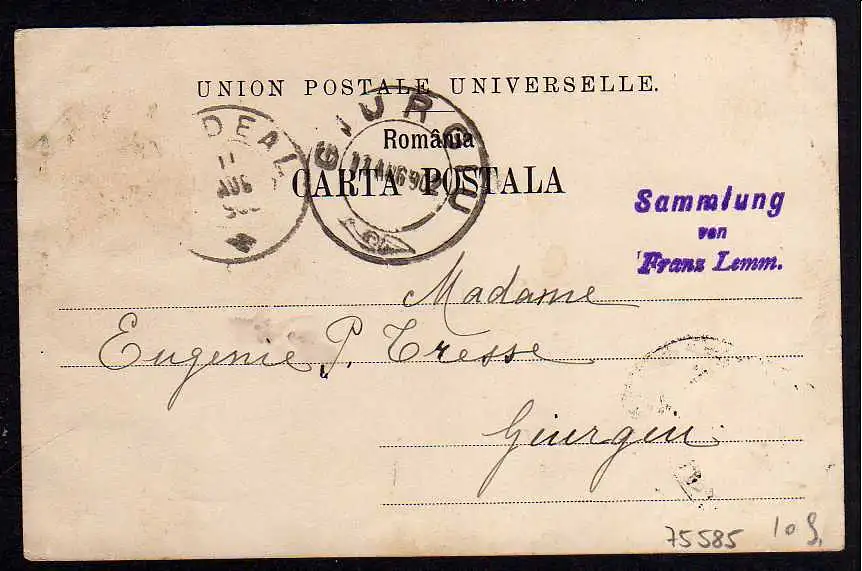 UNION POSTALE UNIVERSELLE.
România
CARTA POSTALA
DEAL
11
AUG
GIURGIU
11 AUG 902
Sammlung
von
Franz Lemm.
Madame
Eugenie P. Tresse
Giurgiu
75585